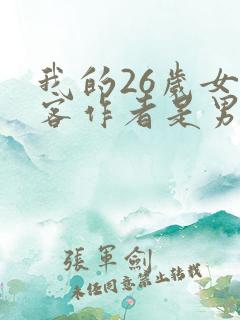 我的26岁女
客作者是男
張軍劍
未经同意禁止转载